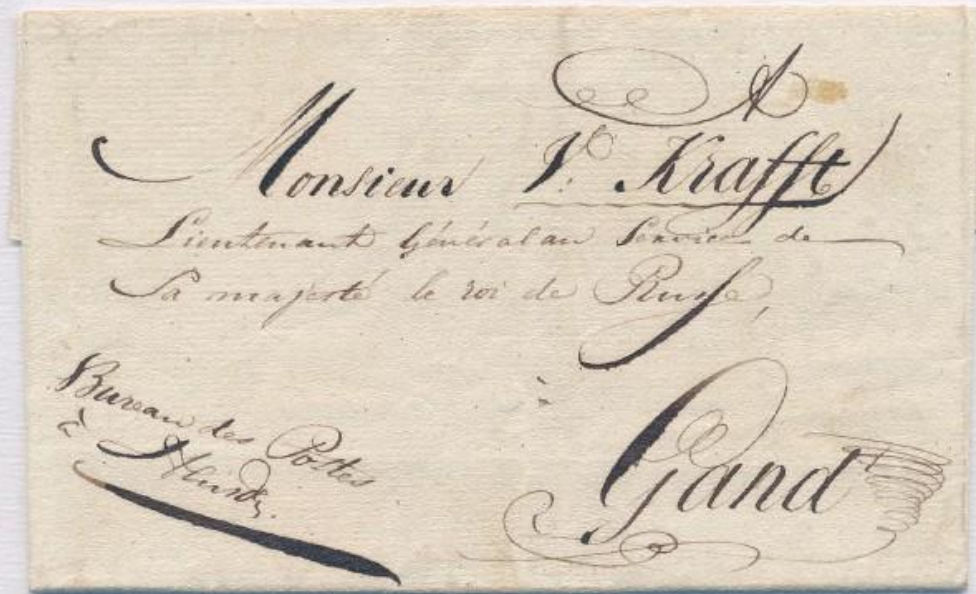 A
Monsieur V. Krafft
Lieutenant Général au Service de
Sa majesté le roi de
à
Gand
Bureau des Postes
à